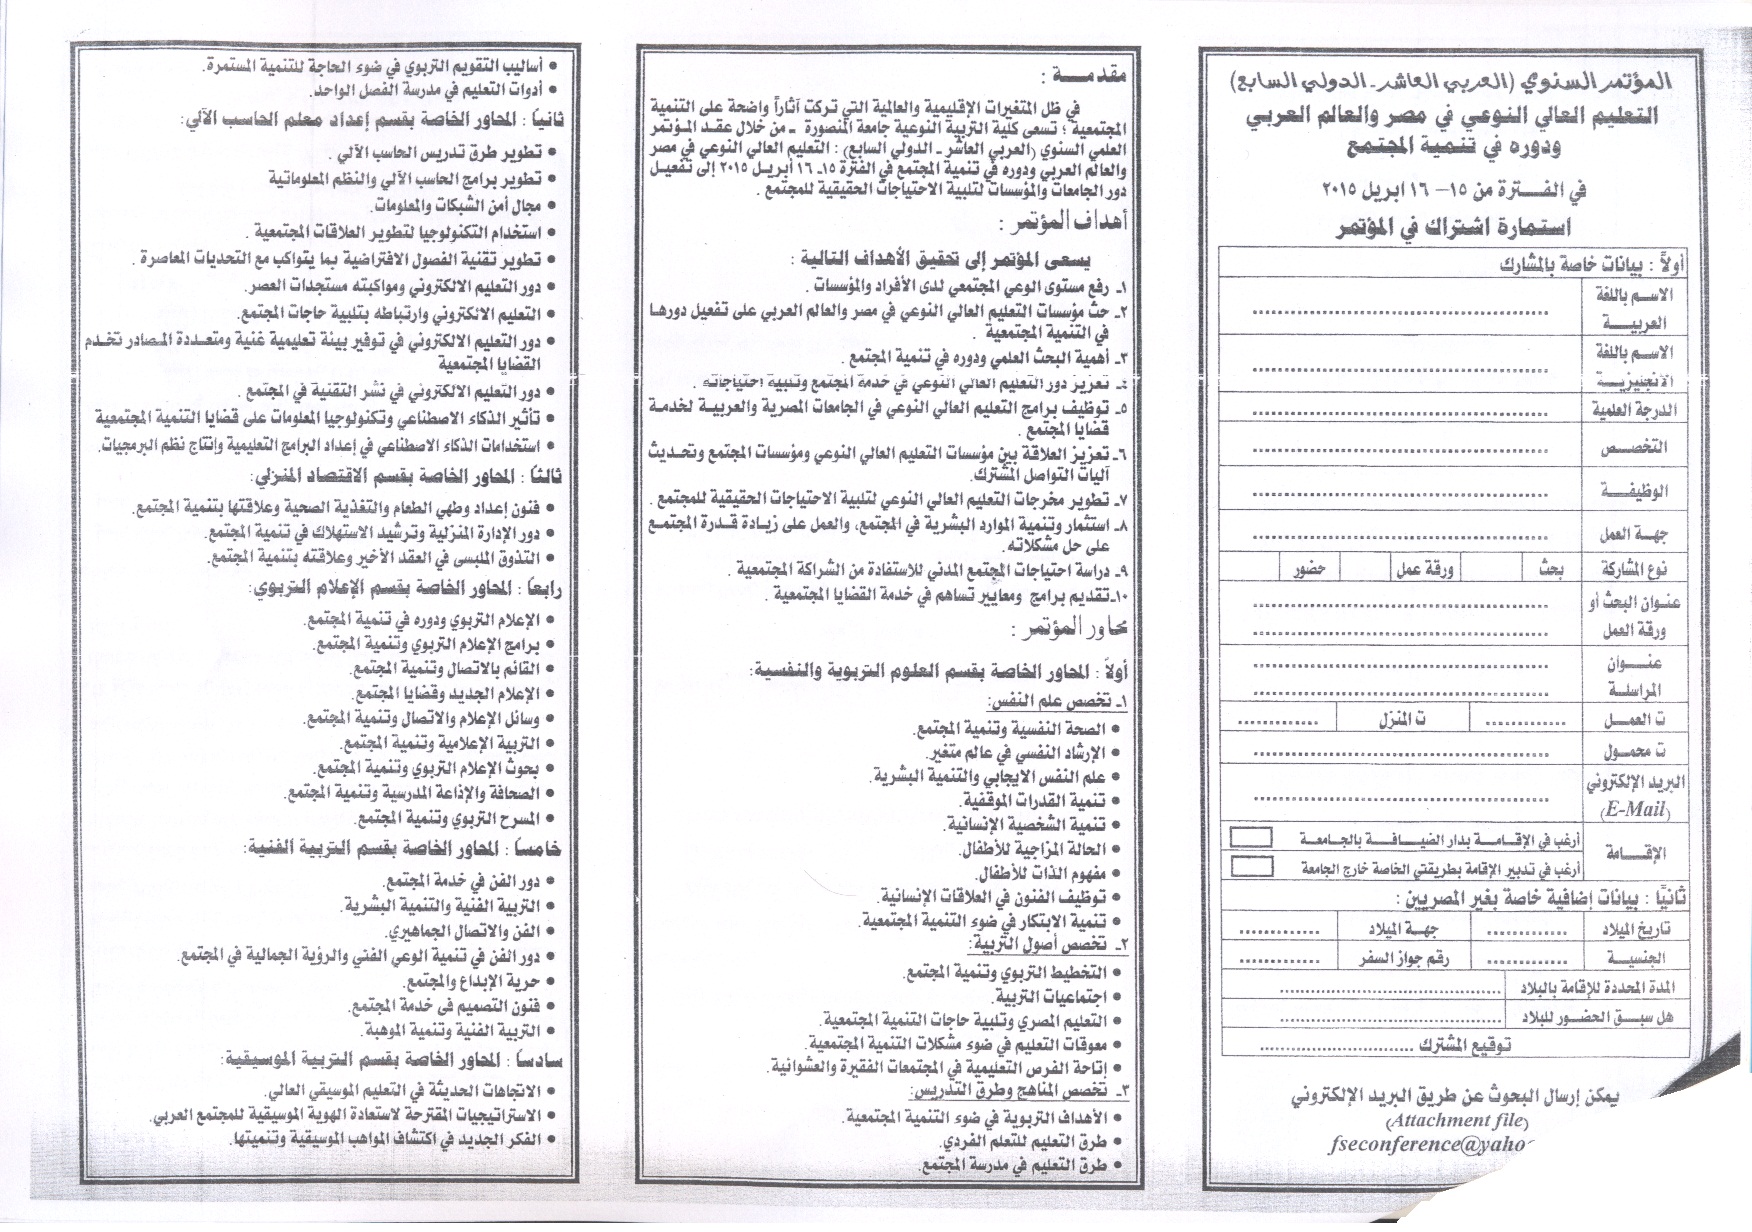 المؤتمر السنوي (العربي العاشر ـ الدولي السابع)
التعليم العالي النوعي في مصر والعالم العربي
ودوره في تنمية المجتمع
في الفترة من ١٥– ١٦ ابريل ٢٠١٥
استمارة اشتراك في المؤتمر
أولاً : بيانات خاصة بالمشارك
الاسم باللغة
العربية
الاسم باللغة
الانجليزية
الدرجة العلمية
التخصص
الوظيفة
جهة العمل
نوع المشاركة بحث ورقة عمل حضور
عنوان البحث أو
ورقة العمل
عنوان
المراسلة
ت العمل ت المنزل
ت محمول
البريد الإلكتروني
(E-Mail)
الإقامة
أرغب في الإقامة بدار الضيافة بالجامعة
أرغب في تدبير الإقامة بطريقتي الخاصة خارج الجامعة
ثانيًا : بيانات إضافية خاصة بغير المصريين :
تاريخ الميلاد جهة الميلاد
الجنسية رقم جواز السفر
المدة المحددة للإقامة بالبلاد
هل سبق الحضور للبلاد
توقيع المشترك
يمكن إرسال البحوث عن طريق البريد الإلكتروني
(Attachment file)
fseconference@yaho
مقدمة :
في ظل المتغيرات الإقليمية والعالمية التي تركت آثاراً واضحة على التنمية
المجتمعية ؛ تسعى كلية التربية النوعية جامعة المنصورة ـ من خلال عقد المؤتمر
العلمي السنوي (العربي العاشر ـ الدولي السابع) : التعليم العالي النوعي في مصر
والعالم العربي ودوره في تنمية المجتمع في الفترة ١٥ـ ١٦ أبريل ٢٠١٥ إلى تفعيل
دور الجامعات والمؤسسات لتلبية الاحتياجات الحقيقية للمجتمع .
أهداف المؤتمر :
يسعى المؤتمر إلى تحقيق الأهداف التالية :
١ـ رفع مستوى الوعي المجتمعي لدى الأفراد والمؤسسات .
٢ـ حث مؤسسات التعليم العالي النوعي في مصر والعالم العربي على تفعيل دورها
في التنمية المجتمعية .
٣ـ أهمية البحث العلمي ودوره في تنمية المجتمع .
٤ـ تعزيز دور التعليم العالي النوعي في خدمة المجتمع وتلبية احتياجاته .
٥ـ توظيف برامج التعليم العالي النوعي في الجامعات المصرية والعربية لخدمة
قضايا المجتمع .
٦ـ تعزيز العلاقة بين مؤسسات التعليم العالي النوعي ومؤسسات المجتمع وتحديث
آليات التواصل المشترك.
٧ـ تطوير مخرجات التعليم العالي النوعي لتلبية الاحتياجات الحقيقية للمجتمع .
٨ـ استثمار وتنمية الموارد البشرية في المجتمع، والعمل على زيادة قدرة المجتمع
على حل مشكلاته.
٩ـ دراسة احتياجات المجتمع المدني للاستفادة من الشراكة المجتمعية .
١٠ـ تقديم برامج ومعايير تساهم في خدمة القضايا المجتمعية .
محاور المؤتمر :
أولاً : المحاور الخاصة بقسم العلوم التربوية والنفسية:
١ـ تخصص علم النفس:
• الصحة النفسية وتنمية المجتمع.
• الإرشاد النفسي في عالم متغير.
• علم النفس الايجابي والتنمية البشرية.
• تنمية القدرات الموقفية.
• تنمية الشخصية الإنسانية.
• الحالة المزاجية للأطفال.
• مفهوم الذات للأطفال.
• توظيف الفنون في العلاقات الإنسانية.
• تنمية الابتكار في ضوء التنمية المجتمعية
٢ـ تخصص أصول التربية:
• التخطيط التربوي وتنمية المجتمع.
• اجتماعيات التربية.
• التعليم المصري وتلبية حاجات التنمية المجتمعية.
• معوقات التعليم في ضوء مشكلات التنمية المجتمعية.
• إتاحة الفرص التعليمية في المجتمعات الفقيرة والعشوائية.
٣ـ تخصص المناهج وطرق التدريس:
• الأهداف التربوية في ضوء التنمية المجتمعية.
• طرق التعليم للتعلم الفردي.
• طرق التعليم في مدرسة المجتمع.
• أساليب التقويم التربوي في ضوء الحاجة للتنمية المستمرة.
• أدوات التعليم في مدرسة الفصل الواحد.
ثانيًا : المحاور الخاصة بقسم إعداد معلم الحاسب الآلي:
• تطوير طرق تدريس الحاسب الآلي .
• تطوير برامج الحاسب الآلي والنظم المعلوماتية
• مجال أمن الشبكات والمعلومات.
• استخدام التكنولوجيا لتطوير العلاقات المجتمعية .
• تطوير تقنية الفصول الافتراضية بما يتواكب مع التحديات المعاصرة .
• دور التعليم الالكتروني ومواكبته مستجدات العصر.
• التعليم الالكتروني وارتباطه بتلبية حاجات المجتمع.
• دور التعليم الالكتروني في توفير بيئة تعليمية غنية ومتعددة المصادر تخدم
القضايا المجتمعية
• دور التعليم الالكتروني في نشر التقنية في المجتمع.
• تأثير الذكاء الاصطناعي وتكنولوجيا المعلومات على قضايا التنمية المجتمعية
• استخدامات الذكاء الاصطناعي في إعداد البرامج التعليمية وإنتاج نظم البرمجيات.
ثالثًا : المحاور الخاصة بقسم الاقتصاد المنزلي:
• فنون إعداد وطهي الطعام والتغذية الصحية وعلاقتها بتنمية المجتمع.
• دور الإدارة المنزلية وترشيد الاستهلاك في تنمية المجتمع.
• التذوق الملبسى في العقد الأخير وعلاقته بتنمية المجتمع.
رابعًا : المحاور الخاصة بقسم الإعلام التربوي:
• الإعلام التربوي ودوره في تنمية المجتمع.
• برامج الإعلام التربوي وتنمية المجتمع.
• القائم بالاتصال وتنمية المجتمع.
• الإعلام الجديد وقضايا المجتمع.
• وسائل الإعلام والاتصال وتنمية المجتمع.
• التربية الإعلامية وتنمية المجتمع.
• بحوث الإعلام التربوي وتنمية المجتمع.
• الصحافة والإذاعة المدرسية وتنمية المجتمع.
• المسرح التربوي وتنمية المجتمع.
خامسًا : المحاور الخاصة بقسم التربية الفنية:
• دور الفن في خدمة المجتمع.
• التربية الفنية والتنمية البشرية.
• الفن والاتصال الجماهيري.
• دور الفن في تنمية الوعي الفني والرؤية الجمالية في المجتمع.
• حرية الإبداع والمجتمع.
• فنون التصميم فى خدمة المجتمع.
• التربية الفنية وتنمية الموهبة.
سادسًا : المحاور الخاصة بقسم التربية الموسيقية:
• الاتجاهات الحديثة في التعليم الموسيقي العالي.
• الاستراتيجيات المقترحة لاستعادة الهوية الموسيقية للمجتمع العربي.
• الفكر الجديد في اكتشاف المواهب الموسيقية وتنميتها.